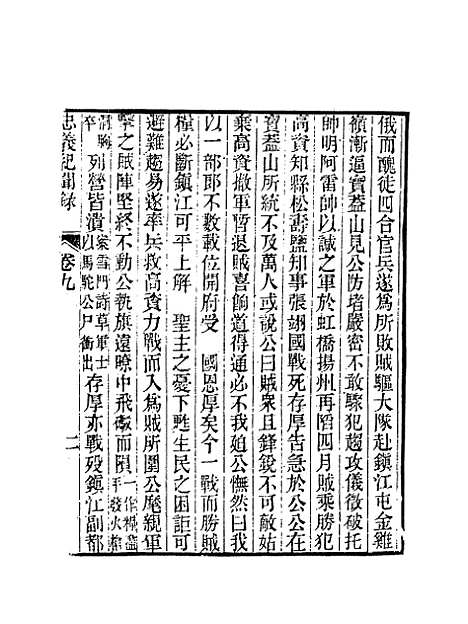 俄而醜徒四合官兵遂爲所敗賊驅大隊赴鎭江屯金雞
嶺漸逼寶葢山見公防堵嚴密不敢驟犯趨攻儀徵破托
帥明阿雷帥以諴之軍於虹橋揚州再陷四月賊乘勝犯
高資知縣松壽鹽知事張翊國戰死存厚告急於公公在
寶葢山所統不及萬人或說公曰賊衆且鋒銳不可敵姑
乘高資撤軍暫退賊喜餉道得通必不我廹公憮然曰我
以一部郎不數載位開府受　國恩厚矣今一戰而勝賊
糧必斷鎭江可平上解　聖主之憂下甦生民之困詎可
避難趨易遂率兵救高資力戰而入爲賊所圍公麾親軍
擊之賊陣堅終不動公執旗遠瞭中飛礮而隕一作裸盔手發火藥
洞胸卒列營皆潰案雪門詩草軍士以馬駝公尸衝出存厚亦戰歿鎭江副都
忠義紀聞錄
卷九
二